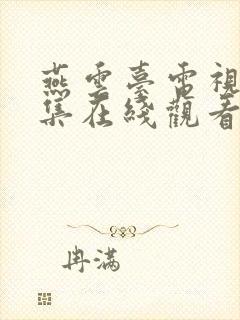 燕雲臺電視
集在綫觀看
冉滿